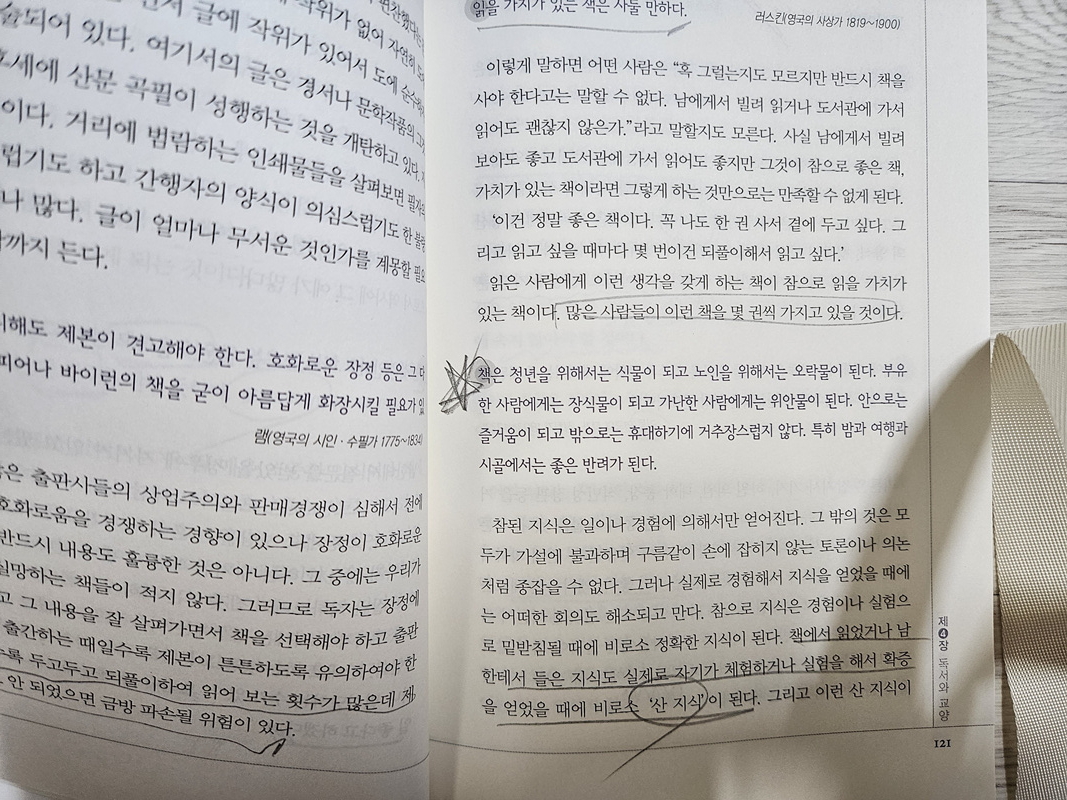 작위가 없어 자연히
먼저 글에 작위가 있어서 도에 순수하
술되어 있다. 여기서의 글은 경서나 문학작품의
세에 산문 곡필이 성행하는 것을 개탄하고 있다.
이다. 거리에 범람하는 인쇄물들을 살펴보면 필자의
럽기도 하고 간행자의 양식이 의심스럽기도 한 불량
나 많다. 글이 얼마나 무서운 것인가를 계몽할 필요
까지 든다.
해도 제본이 견고해야 한다. 호화로운 장정 등은 그
피어나 바이런의 책을 굳이 아름답게 화장시킬 필요가
램(영국의 시인·수필가 1775~1834)
은 출판사들의 상업주의와 판매경쟁이 심해서 전에
호화로움을 경쟁하는 경향이 있으나 장정이 호화로운
반드시 내용도 훌륭한 것은 아니다. 그 중에는 우리가
실망하는 책들이 적지 않다. 그러므로 독자는 장정에
고 그 내용을 잘 살펴가면서 책을 선택해야 하고 출판
출간하는 때일수록 제본이 튼튼하도록 유의하여야 한
록 두고두고 되풀이하여 읽어 보는 횟수가 많은데 제
안 되었으면 금방 파손될 위험이 있다.
읽을 가치가 있는 책은 사둘 만하다.
러스킨(영국의 사상가 1819~1900)
이렇게 말하면 어떤 사람은 “혹 그럴는지도 모르지만 반드시 책을
사야 한다고는 말할 수 없다. 남에게서 빌려 읽거나 도서관에 가서
읽어도 괜찮지 않은가.”라고 말할지도 모른다. 사실 남에게서 빌려
보아도 좋고 도서관에 가서 읽어도 좋지만 그것이 참으로 좋은 책,
가치가 있는 책이라면 그렇게 하는 것만으로는 만족할 수 없게 된다.
‘이건 정말 좋은 책이다. 꼭 나도 한 권 사서 곁에 두고 싶다. 그
리고 읽고 싶을 때마다 몇 번이건 되풀이해서 읽고 싶다.’
읽은 사람에게 이런 생각을 갖게 하는 책이 참으로 읽을 가치가
있는 책이다. 많은 사람들이 이런 책을 몇 권씩 가지고 있을 것이다.
책은 청년을 위해서는 식물이 되고 노인을 위해서는 오락물이 된다. 부유
한 사람에게는 장식물이 되고 가난한 사람에게는 위안물이 된다. 안으로는
즐거움이 되고 밖으로는 휴대하기에 거추장스럽지 않다. 특히 밤과 여행과
시골에서는 좋은 반려가 된다.
참된 지식은 일이나 경험에 의해서만 얻어진다. 그 밖의 것은 모
두가 가설에 불과하며 구름같이 손에 잡히지 않는 토론이나 의논
처럼 종잡을 수 없다. 그러나 실제로 경험해서 지식을 얻었을 때에
는 어떠한 회의도 해소되고 만다. 참으로 지식은 경험이나 실험으
로 밑받침될 때에 비로소 정확한 지식이 된다. 책에서 읽었거나 남
한테서 들은 지식도 실제로 자기가 체험하거나 실험을 해서 확증
을 얻었을 때에 비로소 ‘산 지식’이 된다. 그리고 이런 산 지식이
제4장 독서와 교양
121